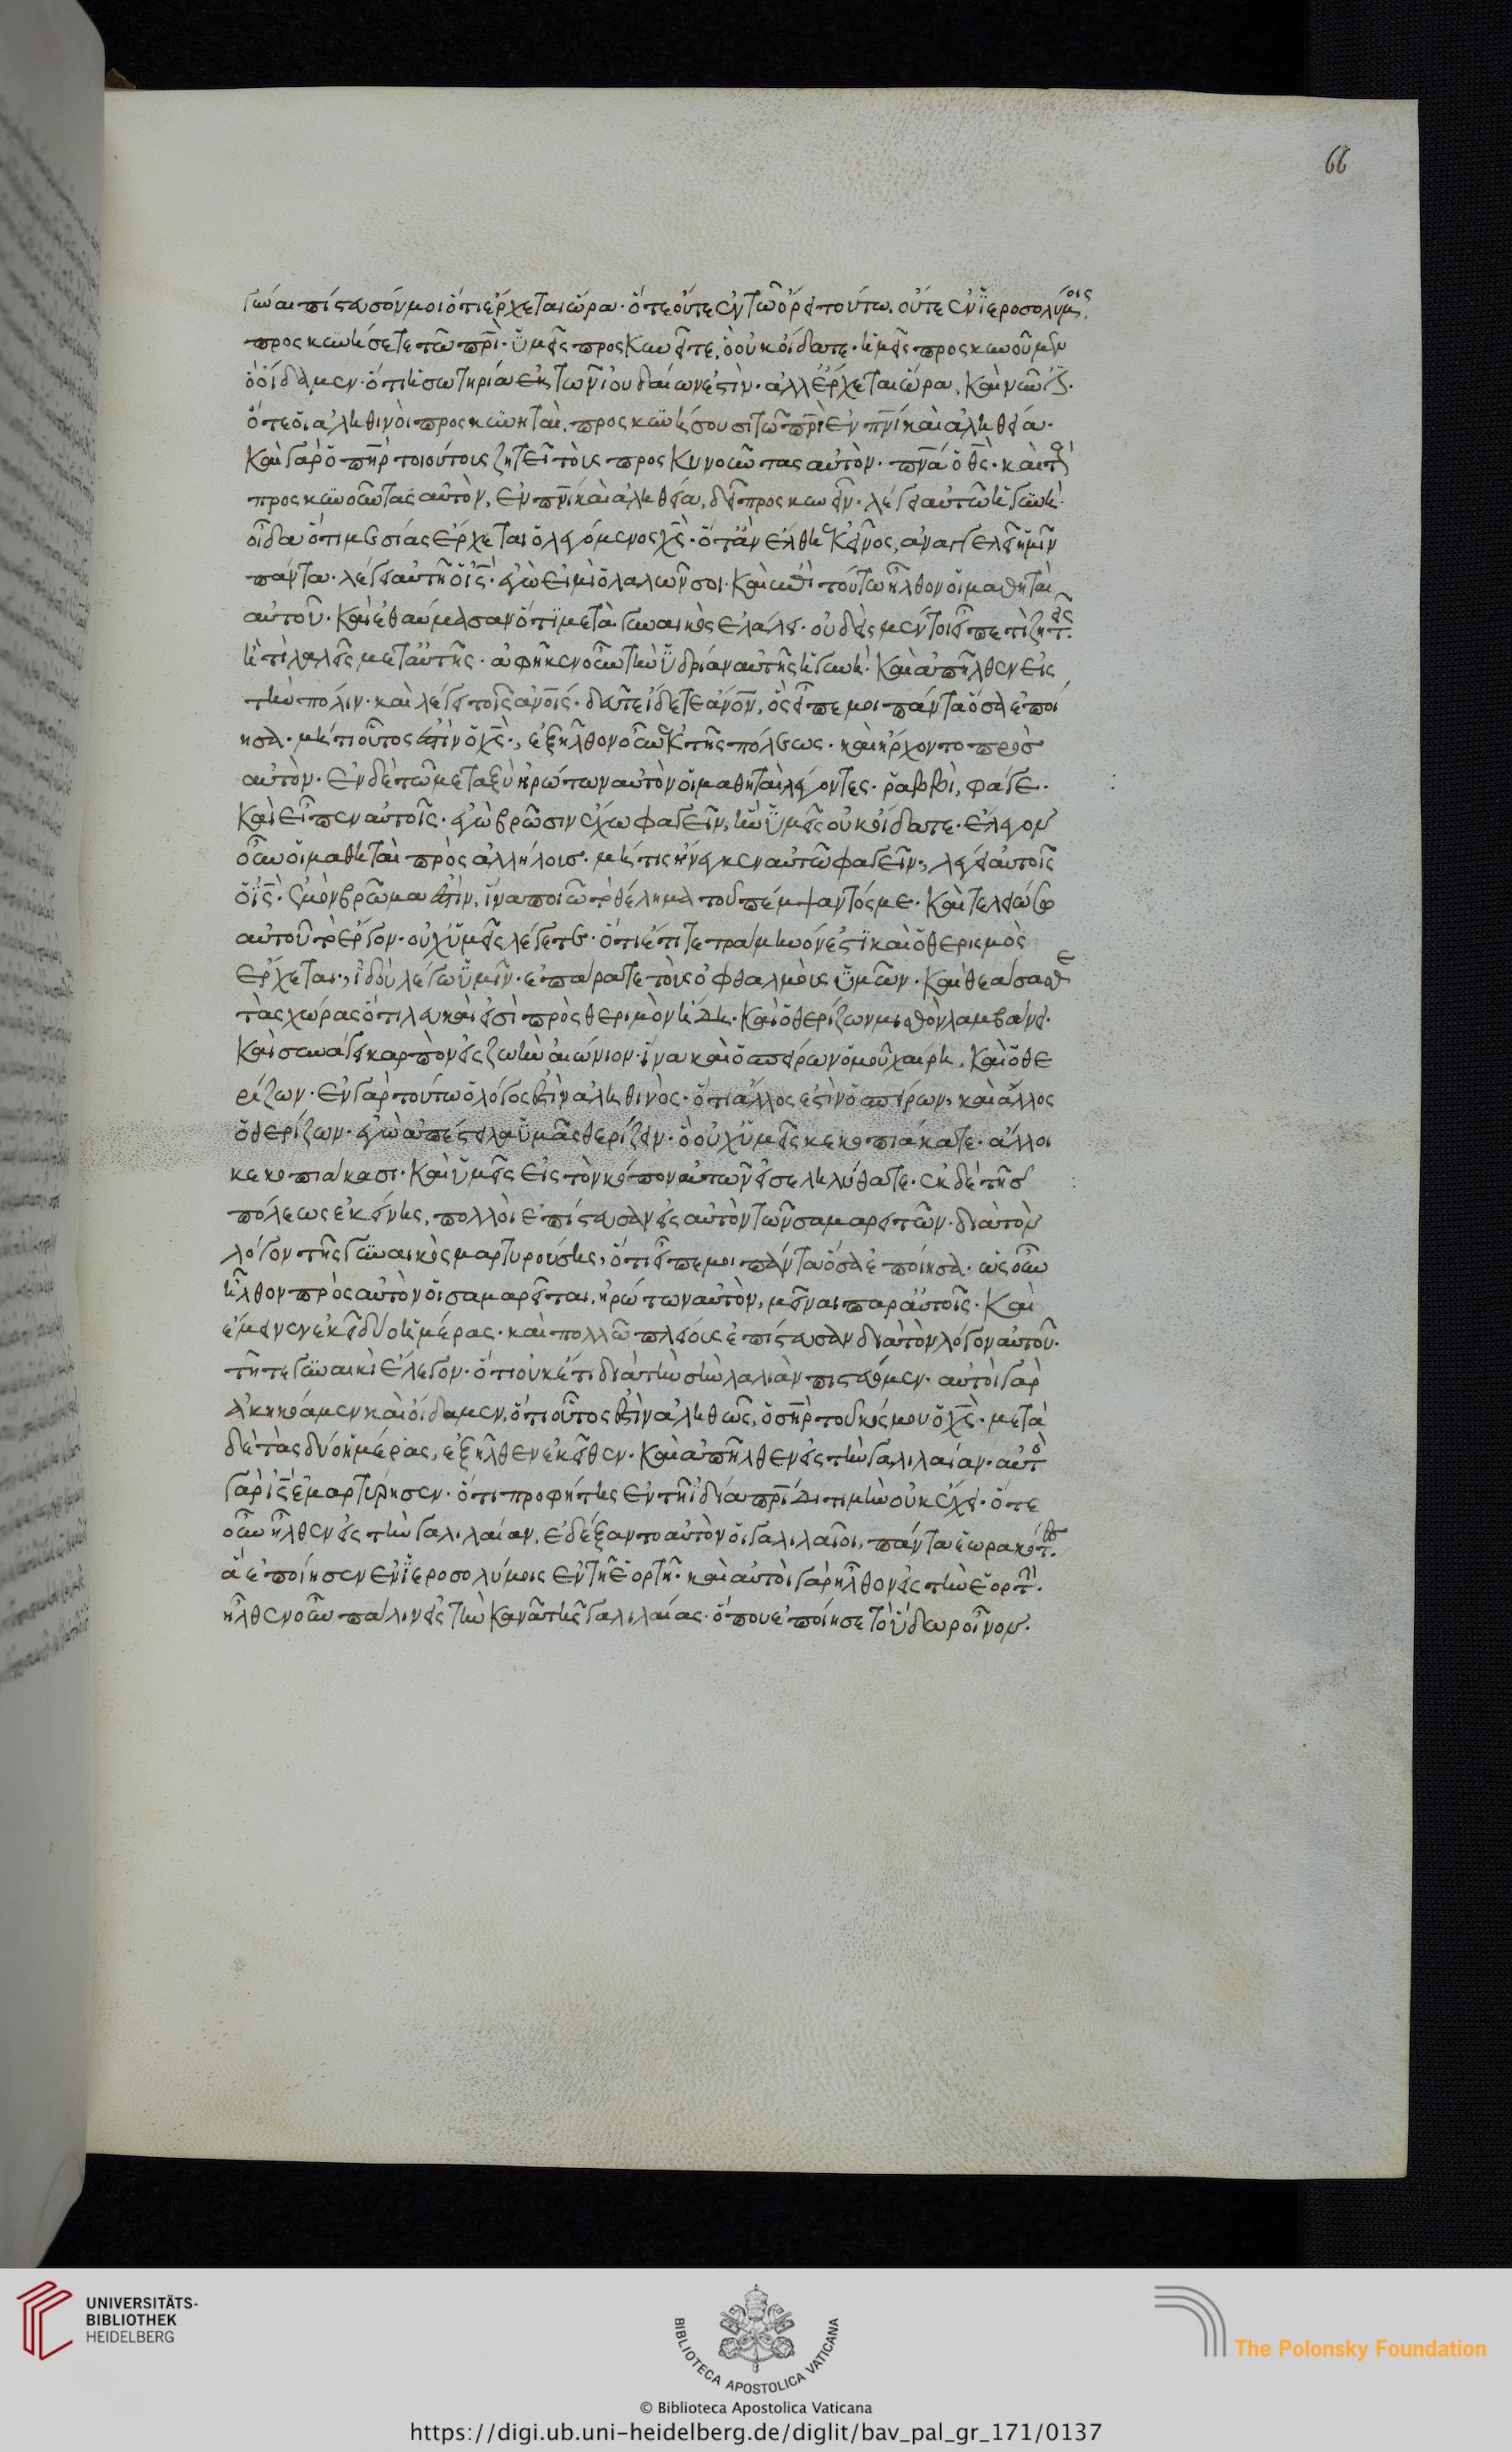 66
γύναι πίστευσόν μοι ὅτι ἔρχεται ὥρα· ὅτε οὔτε ἐν τῶ ὄρει τούτω, οὔτε ἐν ἱεροσολύμοις
προσκυνήσετε τῶ πρι· ὑμεῖς προσκυνεῖτε, ὃ οὐκ οἴδατε· ἡμεῖς προσκυνοῦμεν
ὃ οἴδαμεν· ὅτι ἡ σωτηρία ἐκ τῶν ἰουδαίων ἐστὶν· ἀλλ' ἔρχεται ὥρα, καὶ νῦν ἐστὶ·
ὅτε οἱ ἀληθινοὶ προσκυνηταὶ, προσκυνήσουσι τῶ πρι ἐν πνι καὶ ἀληθεία·
καὶ γὰρ ὁ πηρ τοιούτους ζητεῖ τοὺς προσκυνοῦντας αὐτὸν· πνα ὁ θς· καὶ τοὺς
προσκυνοῦντας αὐτὸν, ἐν πνι καὶ ἀληθεία, δεῖ προσκυνεῖν· λέγει αὐτῶ ἡ γυνὴ·
οἶδα ὅτι μεσίας ἔρχεται ὁ λεγόμενος χς· ὅταν ἔλθη ἐκεῖνος, ἀναγγελεῖ ἡμῖν
πάντα· λέγει αὐτῆ ὁ ις· ἐγὼ εἰμὶ ὁ λαλῶν σοι· καὶ ἐπὶ τούτω ἦλθον οἱ μαθηταὶ
αὐτοῦ· καὶ ἐθαύμασαν ὅτι μετὰ γυναικὸς ἐλάλει· οὐδεὶς μέντοι εἶπε τί ζητεῖς
ἢ τί λαλεῖς μετ' αὐτῆς· ἀφῆκεν οὖν τὴν ὑδρίαν αὐτῆς ἡ γυνὴ· καὶ ἀπῆλθεν εἰς
τὴν πόλιν· καὶ λέγει τοῖς ανοις· δεῦτε ἴδετε ανον, ὃς εἶπε μοι πάντα ὅσα ἐποί
ησα· μήτι οὗτος ἐστὶν ὁ χς·, ἐξῆλθον οὖν ἐκ τῆς πόλεως· καὶ ἤρχοντο πρὸς
αὐτὸν· ἐν δὲ τῶ μεταξὺ ἠρώτων αὐτὸν οἱ μαθηταὶ λέγοντες· ῥαββὶ, φάγε·
καὶ εἶπεν αὐτοῖς· ἐγὼ βρῶσιν ἔχω φαγεῖν, ἣν ὑμεῖς οὐκ οἴδατε· ἔλεγον
οὖν οἱ μαθηταὶ πρὸς ἀλλήλοις· μήτις ἤνεγκεν αὐτῶ φαγεῖν·, λέγει αὐτοῖς
ὁ ις· ἐμὸν βρῶμα ἐστὶν, ἵνα ποιῶ τὸ θέλημα τοῦ πέμψαντός με· καὶ τελειώσω
αὐτοῦ τὸ ἔργον· οὐχ ὑμεῖς λέγετε· ὅτι ἔτι τετράμηνόν ἐστι καὶ ὁ θερισμὸς
ἔρχεται·, ἰδοὺ λέγω ὑμῖν· ἐπάρατε τοὺς ὀφθαλμοὺς ὑμῶν· καὶ θεάσασθε
τὰς χώρας ὅτι λευκαί εἰσὶ πρὸς θερισμὸν ἤδη· καὶ ὁ θερίζων μισθὸν λαμβάνει·
καὶ συνάγει καρπὸν εἰς ζωὴν αἰώνιον· ἵνα καὶ ὁ σπείρων ὁμοῦ χαίρη, καὶ ὁ θε
ρίζων· ἐν γὰρ τούτω ὁ λόγος ἐστὶν ἀληθινὸς· ὅτι ἄλλος ἐστὶν ὁ σπείρων, καὶ ἄλλος
ὁ θερίζων· ἐγὼ ἀπέστειλα ὑμᾶς θερίζειν· ὃ οὐχ ὑμεῖς κεκοπιάκατε· ἄλλοι
κεκοπιάκασι· καὶ ὑμεῖς εἰς τὸν κόπον αὐτῶν εἰσεληλύθατε· ἐκ δὲ τῆς
πόλεως ἐκείνης, πολλοὶ ἐπίστευσαν εἰς αὐτὸν τῶν σαμαρειτῶν· διὰ τὸν
λόγον τῆς γυναικὸς μαρτυρούσης, ὅτι εἶπε μοι πάντα ὅσα ἐποίησα· ὡς οὖν
ἦλθον πρὸς αὐτὸν οἱ σαμαρεῖται, ἠρώτων αὐτὸν, μεῖναι παρ' αὐτοῖς· καὶ
ἔμεινεν ἐκεῖ δύο ἡμέρας· καὶ πολλῶ πλείους ἐπίστευσαν διὰ τὸν λόγον αὐτοῦ·
τῆ τε γυναικὶ ἔλεγον· ὅτι οὐκέτι διὰ τὴν σὴν λαλιὰν πιστεύομεν· αὐτοὶ γὰρ
ἀκηκόαμεν καὶ οἴδαμεν, ὅτι οὗτος ἐστὶν ἀληθῶς, ὁ σηρ τοῦ κόσμου ὁ χς· μετὰ
δὲ τὰς δύο ἡμέρας, ἐξῆλθεν ἐκεῖθεν· καὶ ἀπῆλθεν εἰς τὴν γαλιλαίαν· αὐτὸς
γὰρ ις ἐμαρτύρησεν· ὅτι προφήτης ἐν τῆ ἰδία πρίδι τιμὴν οὐκ ἔχει· ὅτε
οὖν ἦλθεν εἰς τὴν γαλιλαίαν, ἐδέξαντο αὐτὸν οἱ γαλιλαῖοι, πάντα ἑωρακότες
ἃ ἐποίησεν ἐν ἱεροσολύμοις ἐν τῆ ἑορτῆ· καὶ αὐτοὶ γὰρ ἦλθον εἰς τὴν ἑορτὴν·
ἦλθεν οὖν πάλιν εἰς τὴν κανᾶ τῆς γαλιλαίας· ὅπου ἐποίησε τὸ ὕδωρ οἶνον·
UNIVERSITÄTS-
BIBLIOTHEK
HEIDELBERG
BIBLIOTECA APOSTOLICA VATICANA
The Polonsky Foundation
© Biblioteca Apostolica Vaticana
https://digi.ub.uni-heidelberg.de/diglit/bav_pal_gr_171/0137